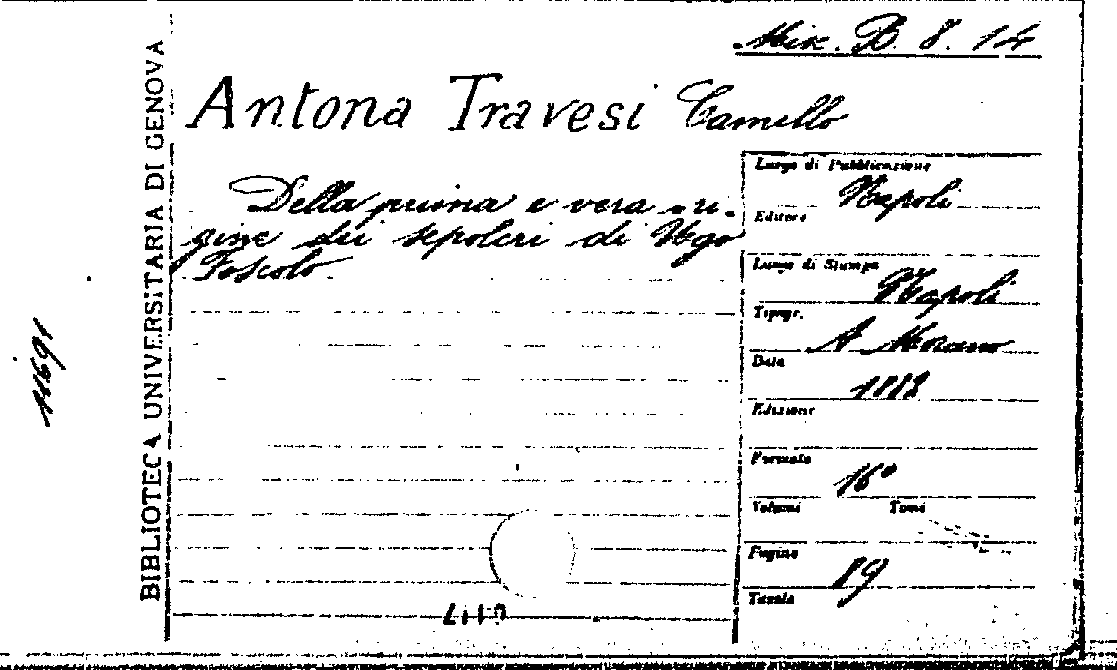 Misc. B. 8. 14
Antona Travesi Camillo
Della prima e vera ori-
gine dei sepolcri di Ugo
Foscolo
Luogo di Pubblicazione
Napoli
Editore
Luogo di Stampa
Napoli
Tipogr.
A Morano
Data
1882
Edizione
Formato
16°
Volumi Tomi
Pagine
89
Tavole
BIBLIOTECA UNIVERSITARIA DI GENOVA